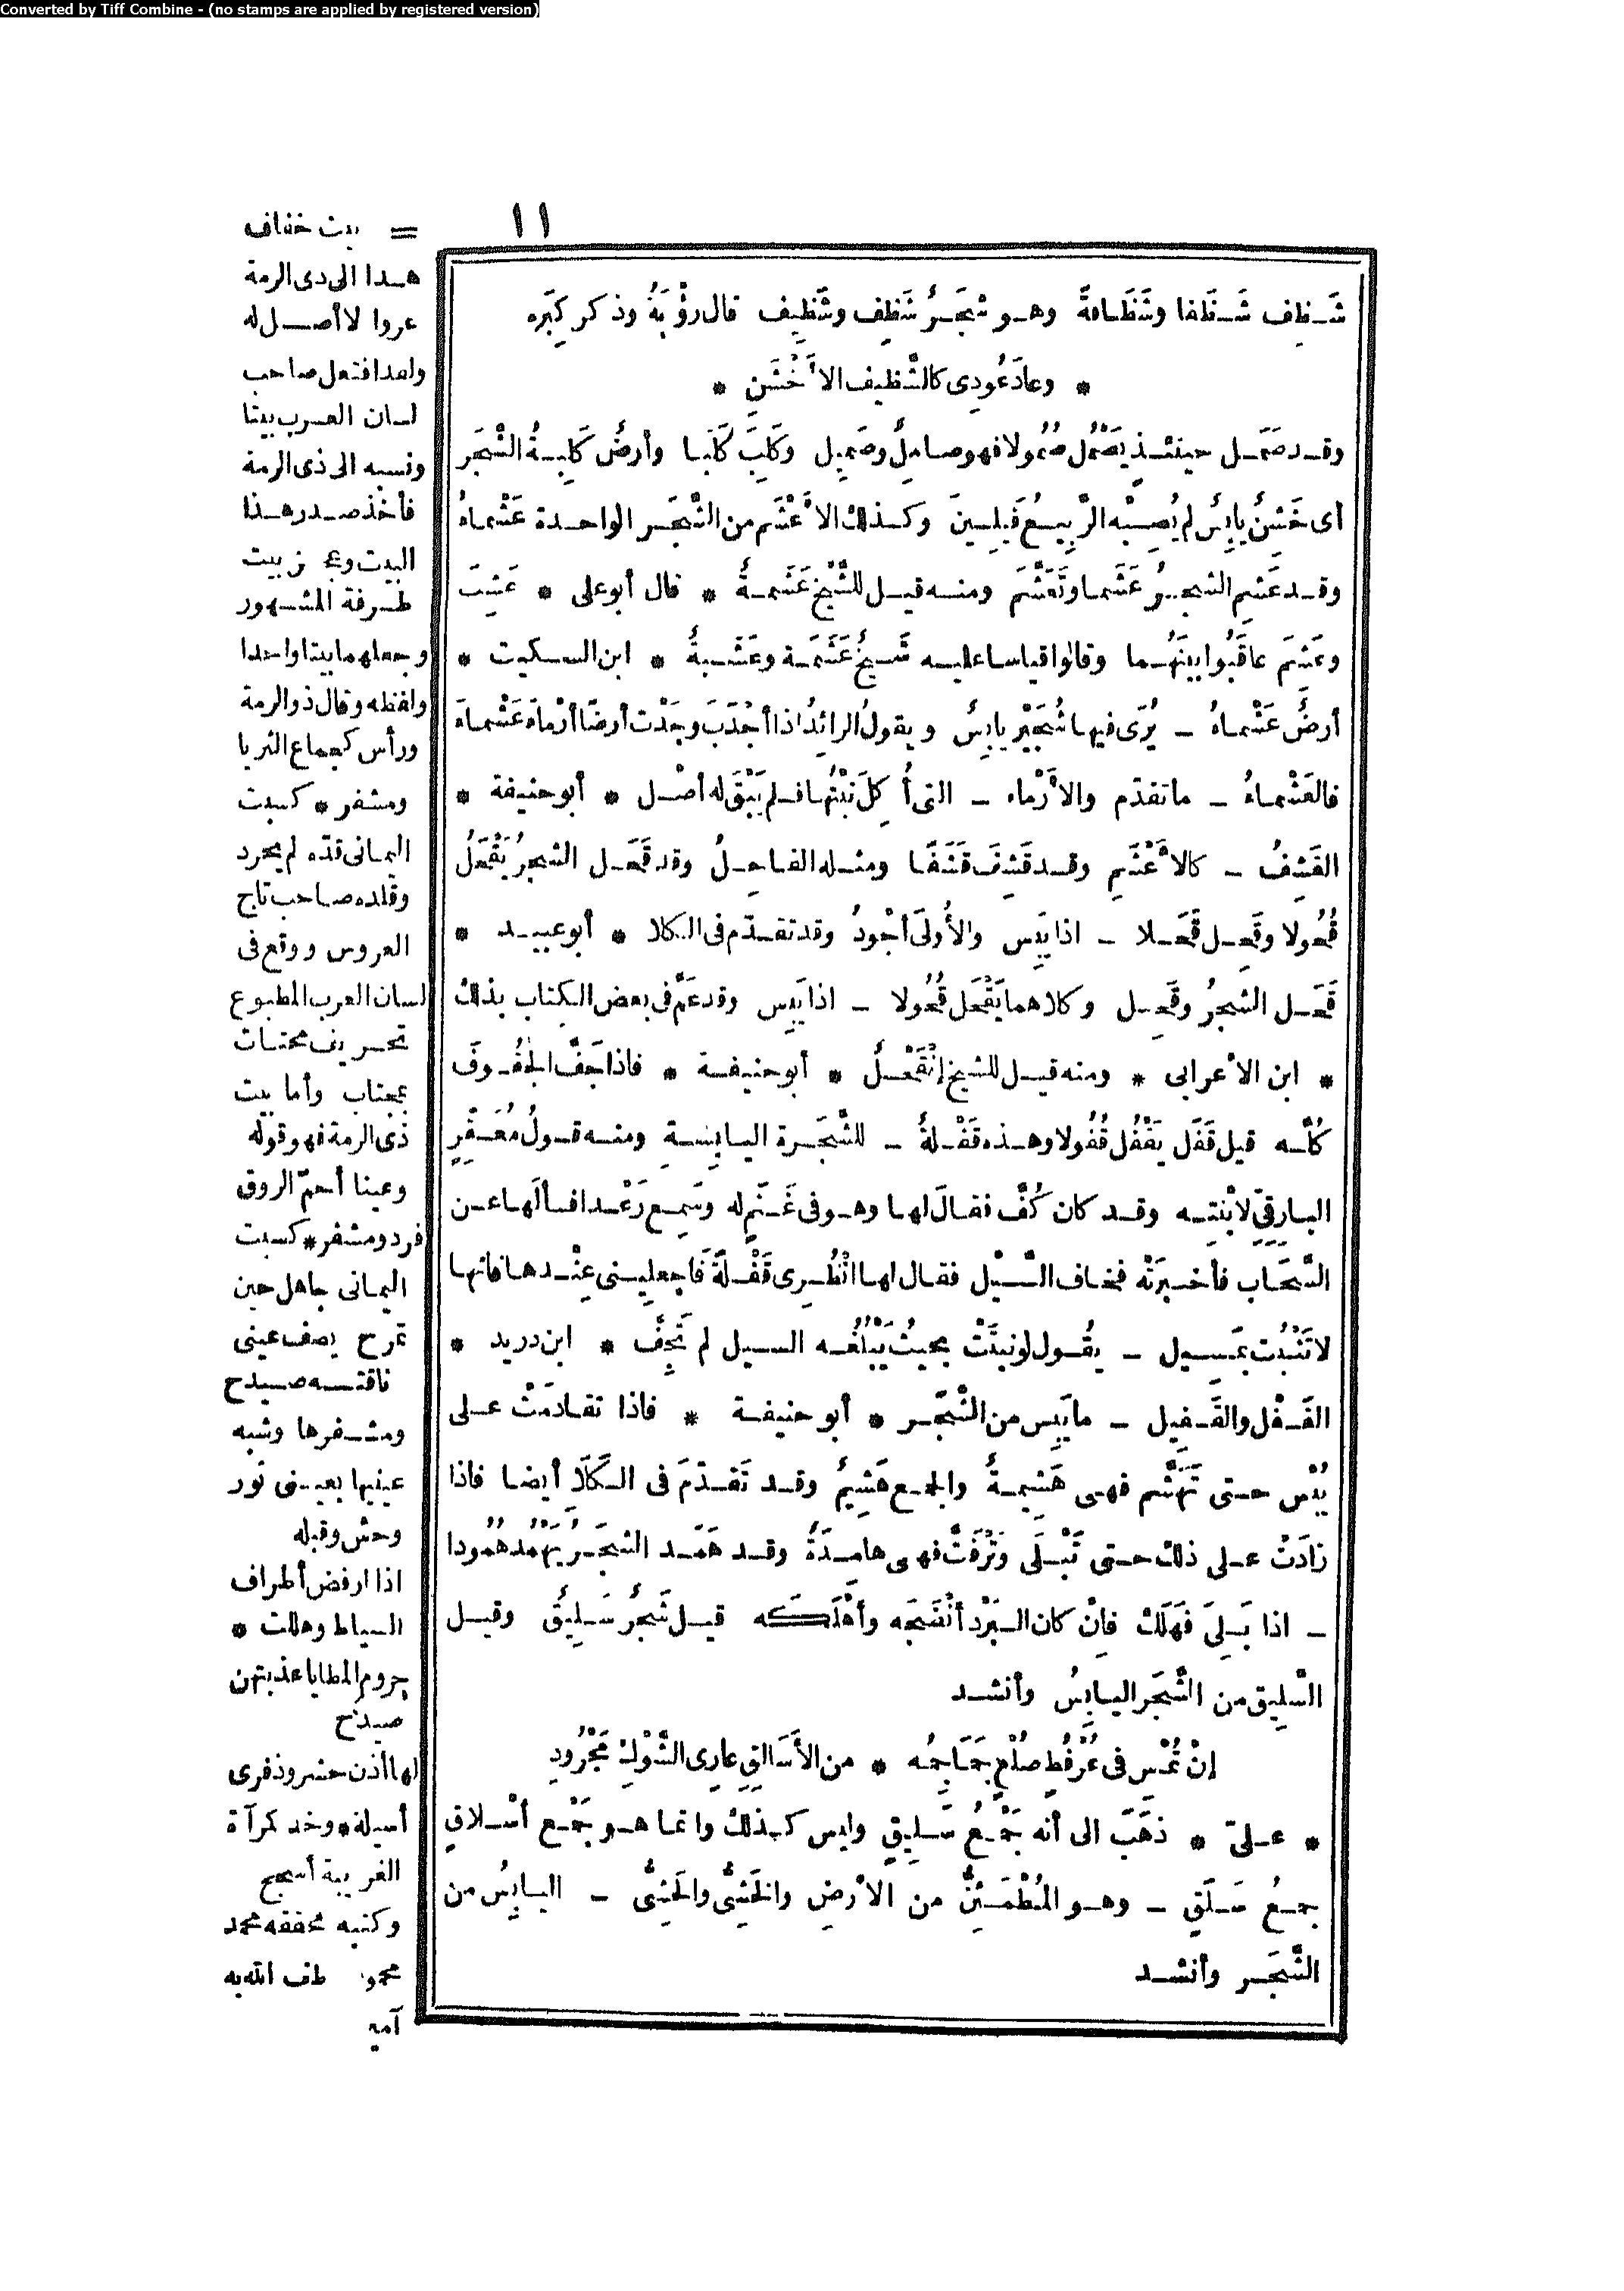 Converted by Tiff Combine - (no stamps are applied by registered version)
١١
شَظِف شَظَفا وشَظَافةً وهو شجَرٌ شَظِف وشَظِيف قال رؤْبَةُ وذكر كِبَره
* وعادَ عُودِى كالشَّظِيف الأَخْشَنِ *
وقد صَمَل حينئذٍ يَصْمُل صُمُولا فهو صامِلٌ وصَمِيل وكَلِبَ كَلَبا وأرضٌ كَلِبةُ الشَّجَر
أى خَشِنٌ يابِسٌ لم يُصِبْه الرَّبِيعُ فيَلِينَ وكذلك الأَعْشَم من الشَّجَر الواحدة عَشْماءُ
وقد عَشِم الشجرُ عَشَما وتَعَشَّمَ ومنه قيل للشَّيْخ عَشَمةٌ * قال أبو على * عَشِبَ
وعَشِمَ عاقَبُوا بينَهُما وقالوا قياسا عليه شَيْخٌ عَشَمَة وعَشَبةٌ * ابن السكيت *
أرضٌ عَشْماءُ - يُرَى فيها شُجَيْر يابِسٌ ويقولُ الرائِدُ اذا أجْدَبَ وجَدْت أرضًا أرْماءَ عَشْماءَ
فالعَشْماءُ - ما تقدّم والأَرْماء - التى أُكِلَ نَبْتُها فلم يَبْقَ له أصْل * أبو حنيفة *
القَشِفُ - كالأَعْشَمِ وقد قَشِفَ قَشَفًا ومثله القاحِلُ وقد قَحَل الشجرُ يَقْحَلُ
قُحُولا وقَحِل قَحَلا - اذا يَبِس والأُولَى أجْودُ وقد تقدّم فى الكلا * أبو عبيد *
قَحَل الشجرُ وقَحِل وكلاهما يَقْحَل قُحُولا - اذا يَبِس وقد عَمَّ فى بعض الكتاب بذلك
* ابن الأعرابى * ومنه قيل للشيخ إنْقَحْلٌ * أبو حنيفة * فاذا جَفَّ الجُفُوفَ
كُلَّه قيل قَفَل يَقْفُل قُفُولا وهذه قَفْلةٌ - للشَّجَرة اليابِسةِ ومنه قولُ مُعَقِّرٍ
البارِقِىِّ لابْنتِه وقد كان كُفَّ فقالَ لها وهو فى غَنَمٍ له وسَمِع رَعْدا فسألَها عن
السَّحَاب فأخبرَتْه فخاف السَّيْل فقال لها انْظُرى قَفْلةً فاجعلِينى عِنْدها فانها
لا تَنْبُت بمَسِيل - يقُول لو نبتَتْ بحيثُ يَبْلُغُه السيل لم تَجِفَّ * ابن دريد *
القَفْل والقَفِيل - ما يَبِس من الشَّجَر * أبو حنيفة * فاذا تقادَمَتْ على
يُبْس حتى تَهَشَّم فهى هَشِيمةٌ والجمع هَشِيمٌ وقد تَقدّمَ فى الكَلَا أيضا فاذا
زادَتْ على ذلك حتى تَبْلَى وتَرْفَتَّ فهى هامِدَةٌ وقد هَمَد الشجَرُ يَهْمُد هُمُودا
- اذا بَلِىَ فهَلَك فانْ كان البَرْد أنْضَجَه وأهْلَكَه قيل شَجَرٌ سَلِيقٌ وقيل
السَّلِيق من الشَّجَر اليابِسُ وأنشد
إنْ تُمْسِ فى عُرْفُطٍ صُلْعٍ جَمَاجِمُه * من الأَسَالِقِ عارِى الشَّوْكِ مَجْرُودِ
* علىّ * ذهَبَ الى أنه جَمْعُ سَلِيقٍ وليس كذلك وانما هو جَمْع أسْلاقٍ
جمعُ سَلَقٍ - وهو المُطْمَئِنُّ من الأرضِ والخَشِىُّ والحَشِىُّ - اليابِسُ من
الشَّجَر وأنشد
= بيت خفاف
هذا الى ذى الرمة
عزوا لا أصل له
ولهذا افتعل صاحب
لسان العرب بيتا
ونسبه الى ذى الرمة
فأخذ صدر هذا
البيت وعجز بيت
طرفة المشهور
وجعلهما بيتا واحدا
ولفظه وقال ذو الرمة
ورأس كجماع الثريا
ومشفر * كسبت
اليمانى قدّه لم يجرد
وقلده صاحب تاج
العروس ووقع فى
لسان العرب المطبوع
تحريف محتاث
بمجتاب وأما بيت
ذى الرمة فهو قوله
وعينا أحمّ الروق
فرد ومشفر * كسبت
اليمانى جاهل حين
تمرح يصف عينى
ناقته صيدح
ومشفرها وشبه
عينيها بعينى ثور
وحش وقبله
اذا ارفض أطراف
السياط وهللت *
جروم المطايا عذبتهن
صيدح
لها أذن حشر وذفرى
أسيلة * وخد كمرآة
الغريبة أسجح
وكتبه محققه محمد
محمود لطف الله به
آمين